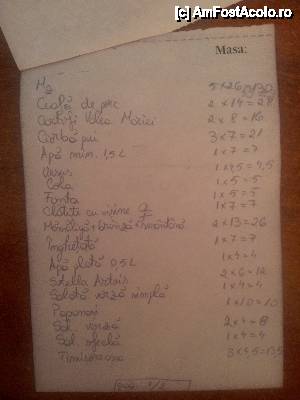 (c) AmFostAcolo.ro
Masa:
M2 5x26=130
Ceafă de porc 2x14=28
Cartofi Valea Mariei 2x8=16
Ciorbă pui 3x7=21
Apă min. 1,5L 1x7=7
Ursus 1x4,5=4,5
Cola 1x5=5
Fanta 1x5=5
Clătite cu vișine 1x7=7
Mămăligă+brânză+smântână 2x13=26
Înghețată 1x7=7
Apă plată 0,5L 1x4=4
Stella Artois 2x6=12
Salată varză simplă 1x4=4
Papanași 1x10=10
Sal. varză 2x4=8
Sal. sfeclă 1x4=4
Timisoreana 3x4,5=13,5